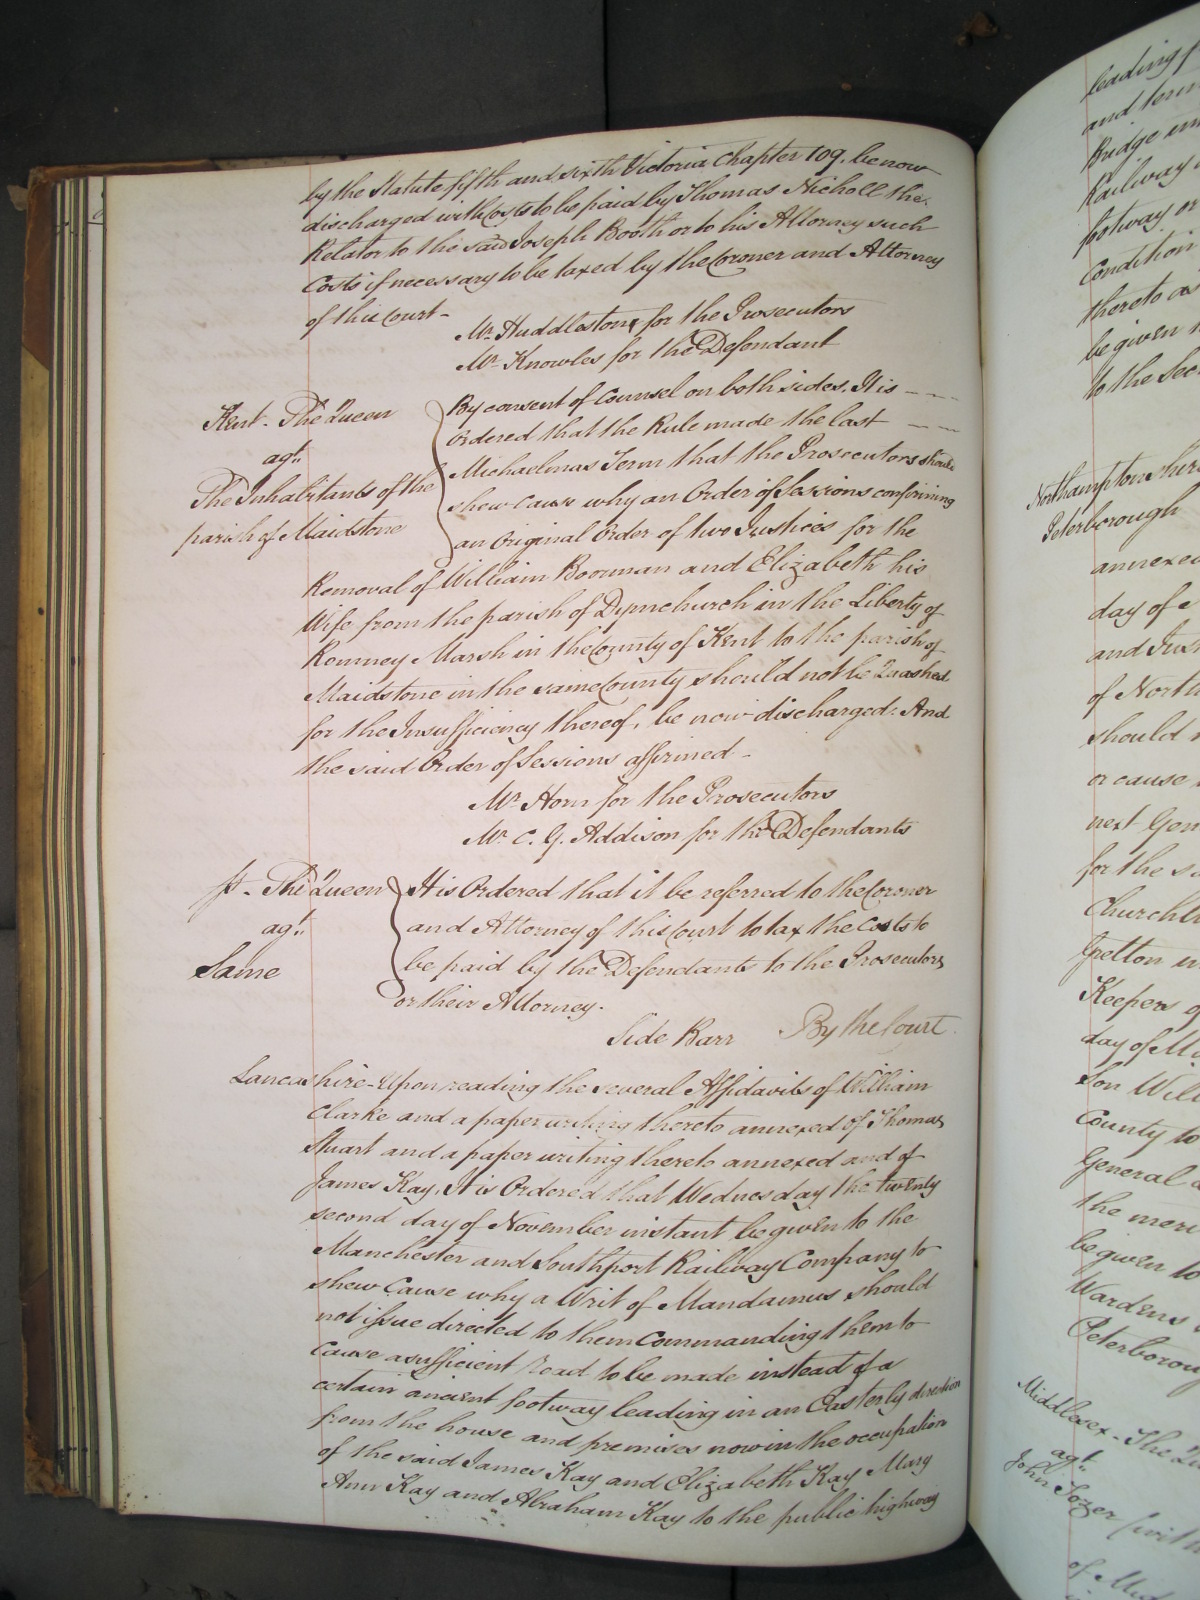 by the Statute fifth and sixth Victoria Chapter 109. be now
discharged with Costs to be paid by Thomas Nicholl the
Relator to the said Joseph Booth or to his Attorney such
Costs if necessary to be taxed by the Coroner and Attorney
of this Court -
Mr. Huddlestone for the Prosecutors
Mr. Knowles for the Defendant
Kent - The Queen
agt.
The Inhabitants of the
parish of Maidstone
By consent of Counsel on both sides. It is
Ordered that the Rule made the last
Michaelmas Term that the Prosecutors should
shew Cause why an Order of Sessions confirming
an Original Order of two Justices for the
Removal of William Boorman and Elizabeth his
Wife from the parish of Dymchurch in the Liberty of
Romney Marsh in the County of Kent to the parish of
Maidstone in the same County should not be Quashed
for the Insufficiency thereof, be now discharged: And
the said Order of Sessions affirmed -
Mr. Horn for the Prosecutors
Mr. C. G. Addison for the Defendants
St. - The Queen
agt.
Same
It is Ordered that it be referred to the Coroner
and Attorney of this Court to tax the Costs to
be paid by the Defendants to the Prosecutors
or their Attorney.
Side Barr By the Court.
Lancashire - Upon reading the several Affidavits of William
Clarke and a paper writing thereto annexed of Thomas
Stuart and a paper writing thereto annexed and of
James Kay, It is Ordered that Wednesday the twenty
second day of November instant be given to the
Manchester and Southport Railway Company to
shew Cause why a Writ of Mandamus should
not issue directed to them Commanding them to
Cause a sufficient road to be made instead of a
certain ancient footway leading in an Easterly direction
from the house and premises now in the occupation
of the said James Kay and Elizabeth Kay Mary
Ann Kay and Abraham Kay to the public highway
leading
and
Bridge
Railway
footway or
Condition
thereto as
be given
to the Sec
Northamptonshire
Peterborough
annexed
day of
and Jus
of North
should
or cause
next Gen
for the
Church
Gretton
Keepers
day of
son Will
County to
General
the
be given to
Wardens
Peterborough
Middlesex - The
agt.
John Tozer (with
of Mid